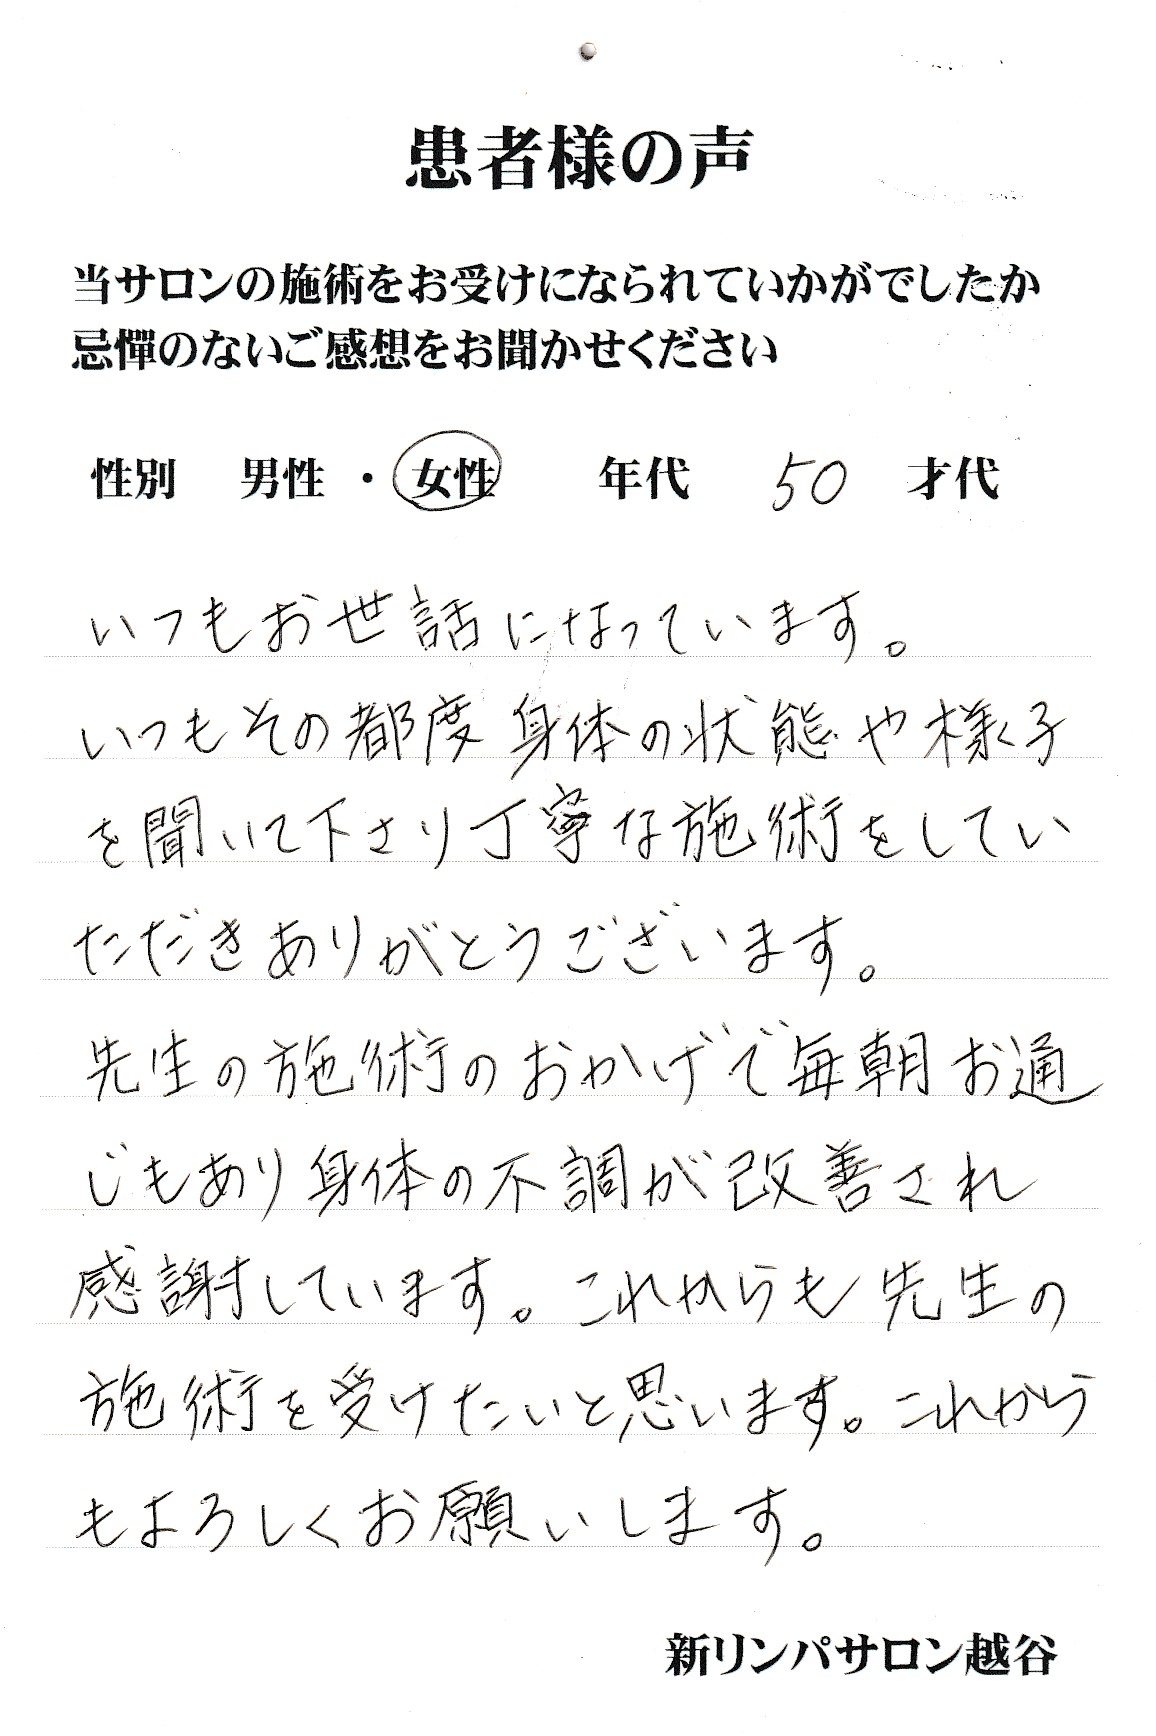 患者様の声
当サロンの施術をお受けになられていかがでしたか
忌憚のないご感想をお聞かせください
性別 男性 ・ 女性 年代 50 才代
いつもお世話になっています。
いつもその都度身体の状態や様子
を聞いて下さり丁寧な施術をしてい
ただきありがとうございます。
先生の施術のおかげで毎朝お通
じもあり身体の不調が改善され
感謝しています。これからも先生の
施術を受けたいと思います。これから
もよろしくお願いします。
新リンパサロン越谷